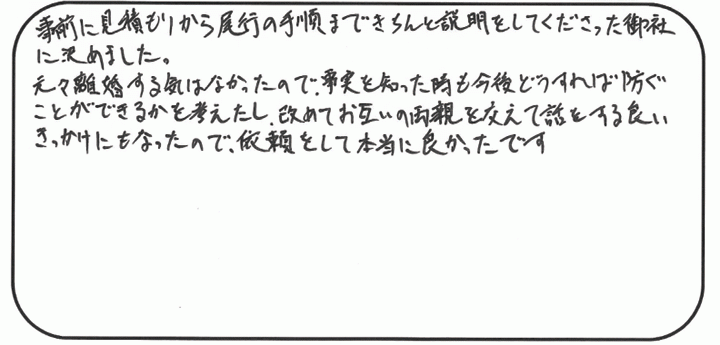 事前に見積もりから尾行の手順まできちんと説明をしてくださった御社
に決めました。
元々離婚する気はなかったので、事実を知った時も今後どうすれば防ぐ
ことができるかを考えたし、改めてお互いの両親を交えて話をする良い
きっかけにもなったので、依頼をして本当に良かったです